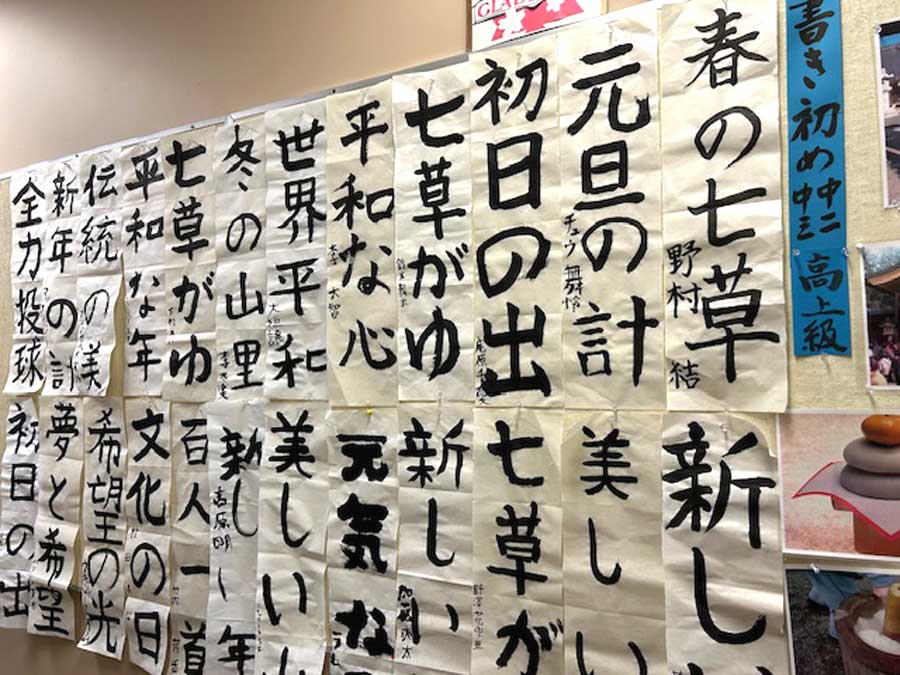 書き初め 中二 中三 高上級
春の七草
野村 結
元旦の計
チュウ 舞怜
初日の出
七草がゆ
平和な心
世界平和
冬の山里
七草がゆ
平和な年
伝統の美
新年の計
全力投球
新しい
美しい
七草が
新しい
元気な
美しい山
新しい年
百人一首
文化の日
希望の光
夢と希望
初日の出